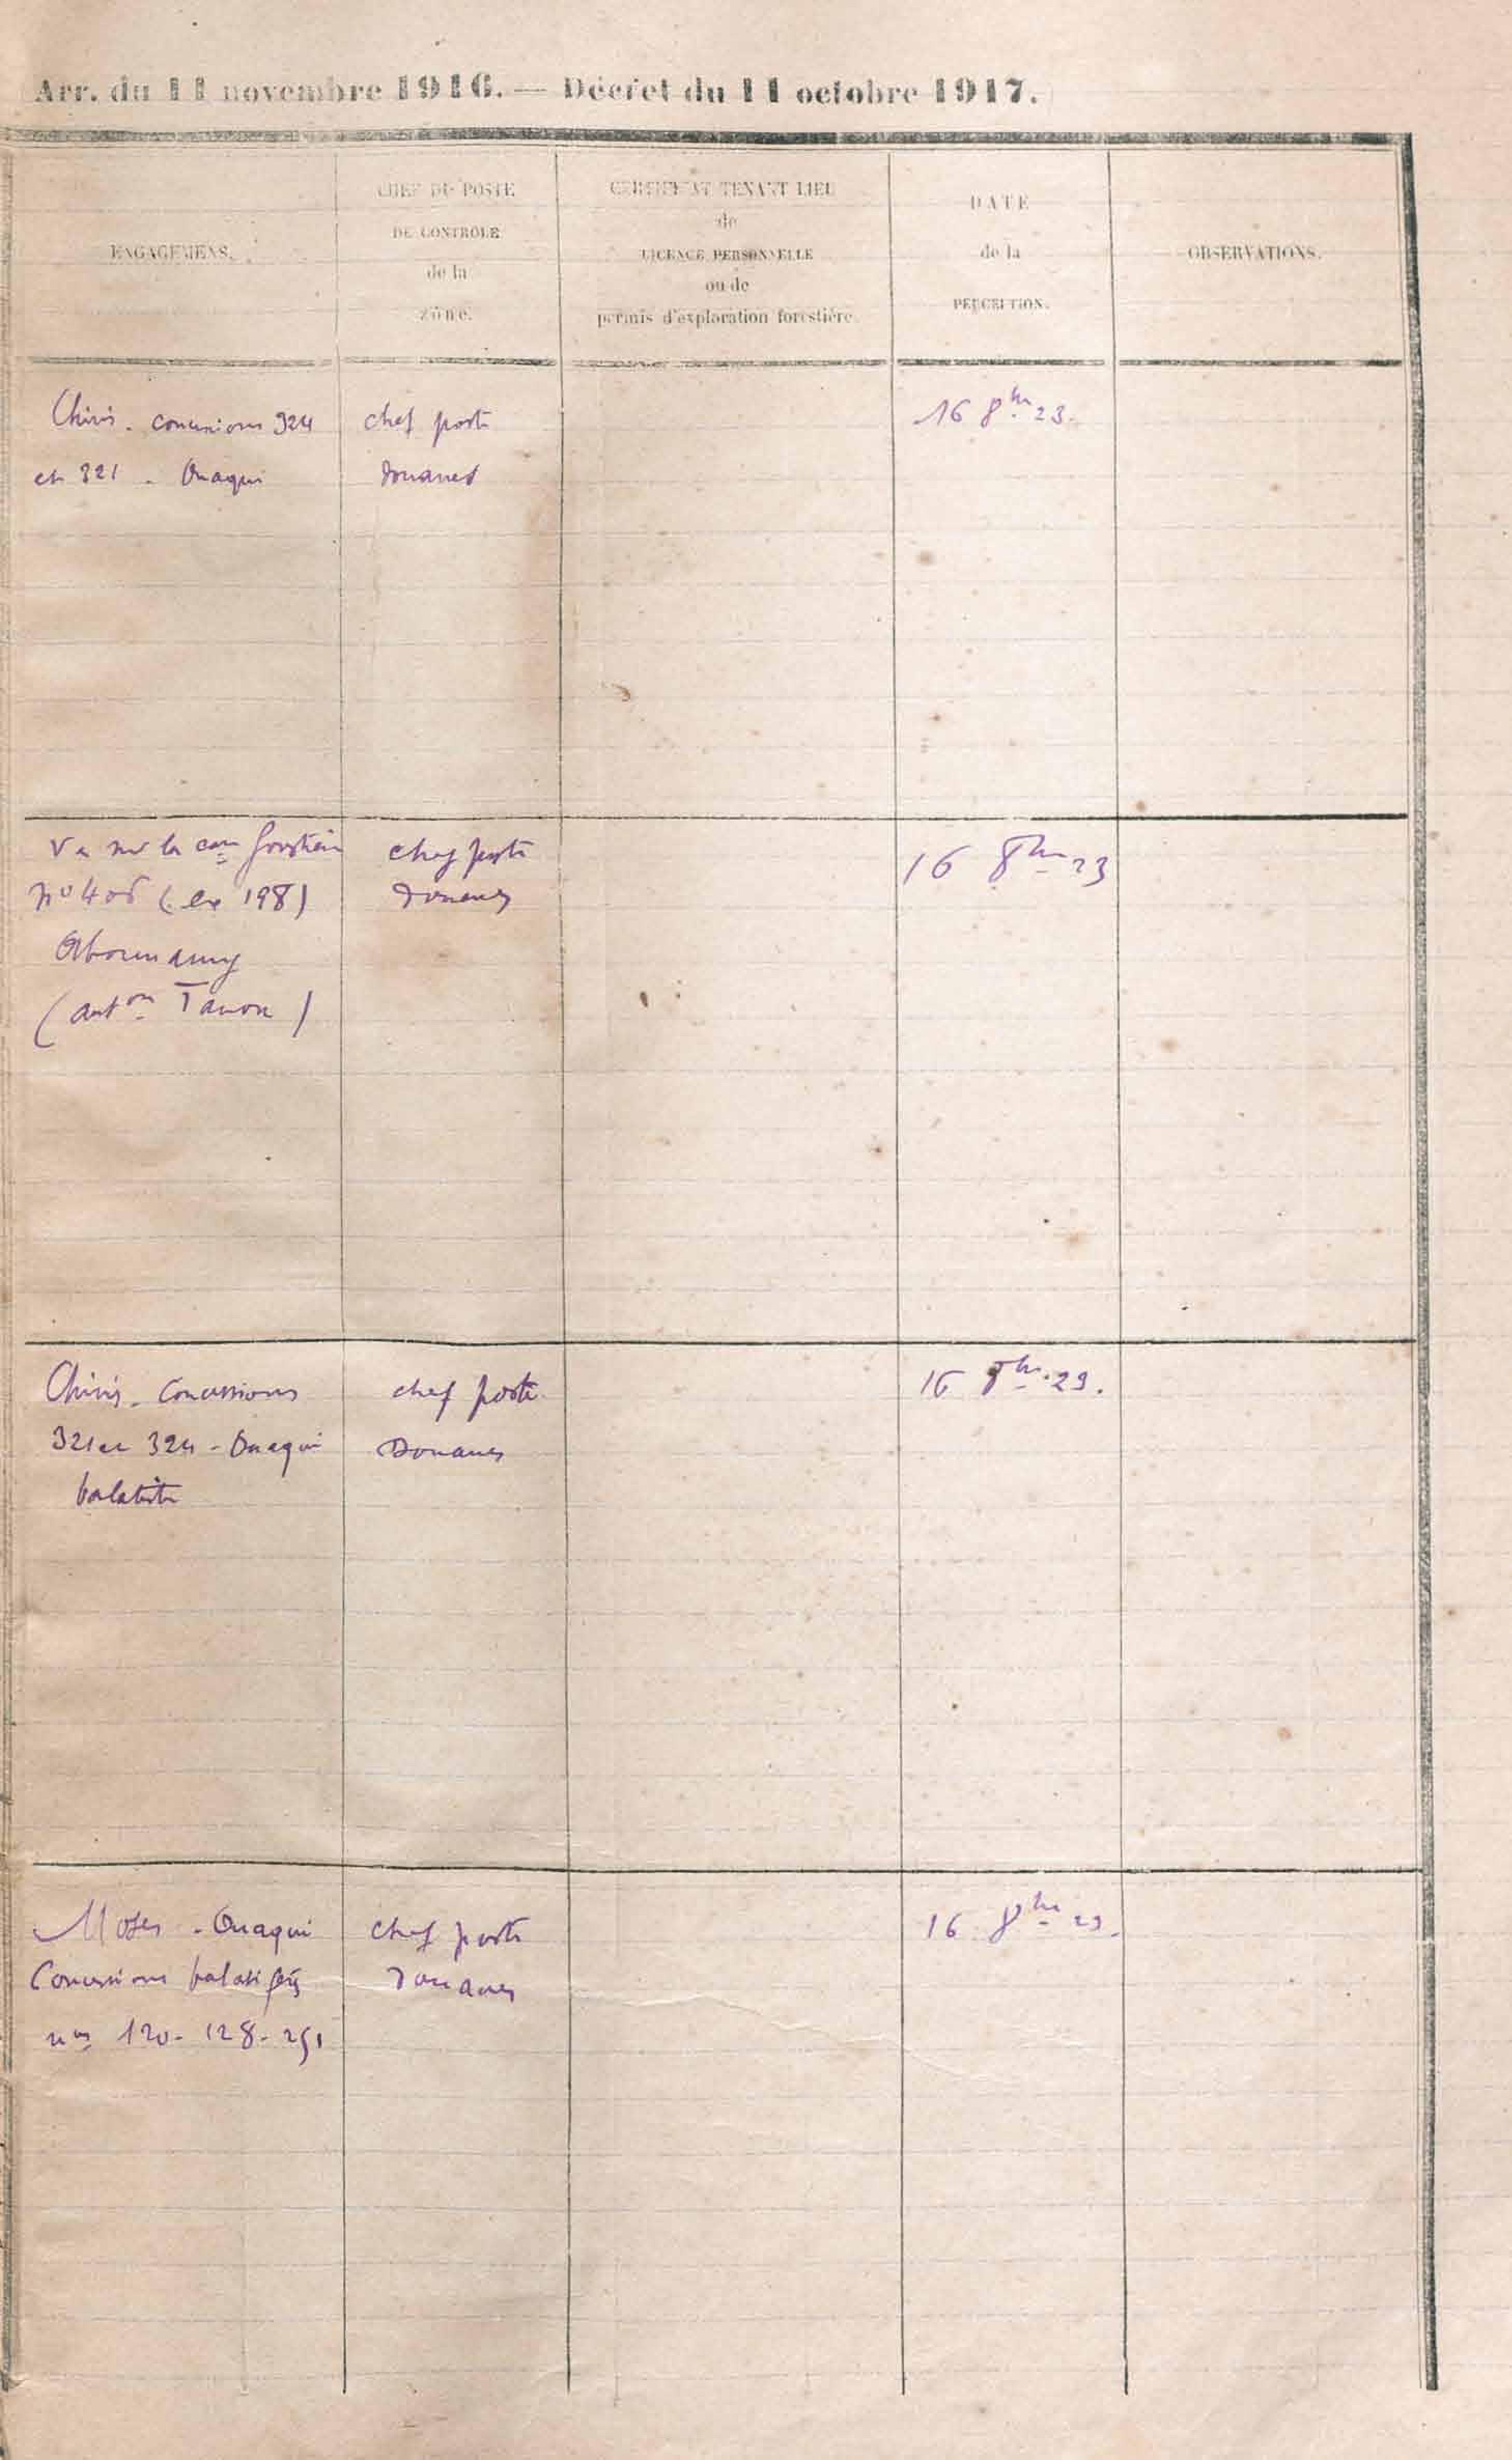 Arr. du 11 novembre 1916. — Décret du 11 octobre 1917.
ENGAGEMENS.
CHEF DU POSTE
DE CONTROLE
de la
zône.
CERTIFICAT TENANT LIEU
de
LICENCE PERSONNELLE
ou de
permis d'exploration forestière.
DATE
de la
PERCEPTION.
OBSERVATIONS.
Chiris. concessions 324
et 321 - Ouaqui
chef poste
Douanes
16 8bre 23.
Va sur la con forestière
No 406 (ex 198)
Abounamy
(auton Tanon)
chef poste
Douanes
16 8bre 23
Chiris. Concessions
321 et 324 - Ouaqui
balatiste
chef poste
Douanes
16 8bre 23.
Moses - Ouaqui
Concessions balatifères
nos 120 - 128 - 251
chef poste
Douanes
16 8bre 23.